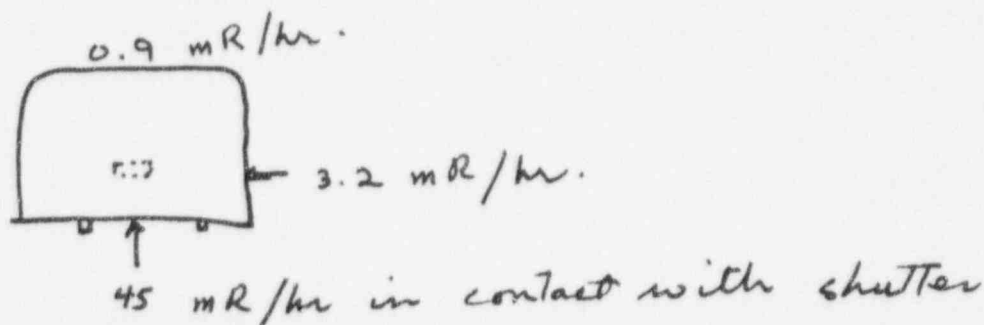 0.9 mR/hr.
3.2 mR/hr.
45 mR/hr in contact with shutter